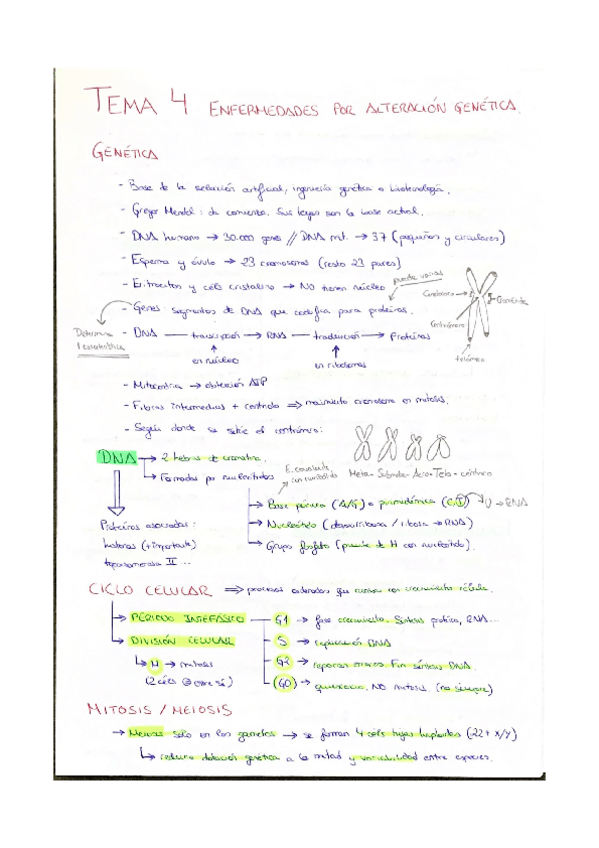 TEMA 4 ENFERMEDADES POR ALTERACIÓN GENÉTICA.
GENÉTICA
- Base de la selección artificial, ingeniería genética o biotecnología.
- Gregor Mendel: da comienzo. Sus leyes son la base actual.
- DNA humano → 30.000 genes // DNA mt. → 37 (pequeños y circulares)
- Esperma y óvulo → 23 cromosomas (resto 23 pares)
- Eritrocitos y céls cristalino → NO tienen núcleo
puede varias
- Genes: segmentos de DNA que codifica para proteínas.
Determina 1 característica
Centrómero
Telómero
- DNA → transcripción → RNA → traducción → Proteínas
en núcleo
en ribosomas
- Mitocondria → obtención ATP
- Fibras intermedias + centriolo ⇒ movimiento cromosoma en mitosis.
- Según donde se sitúe el centrómero:
Meta- Submeta- Acro- Telo- céntrico
DNA → 2 hebras de cromatina.
→ Formadas por nucleótidos
E. covalente
→ Base púrica (A/G) o pirimidínica (C/T) → U → RNA
→ Nucleósido (desoxirribosa / ribosa → RNA)
→ Grupo fosfato (puente de H con nucleótido).
Proteínas asociadas:
histonas (+ importante)
topoisomerasa II ...
CICLO CELULAR ⇒ procesos ordenados que culminan con crecimiento célula.
→ PERIODO INTERFÁSICO
→ DIVISIÓN CELULAR
→ M → mitosis
(2 céls = entre sí)
G1 → fase crecimiento. Síntesis proteína, RNA...
S → replicación DNA
G2 → reparar errores. Fin síntesis DNA.
(G0) → quiescencia. NO mitosis. (no siempre)
MITOSIS / MEIOSIS
→ Meiosis solo en los gametos → se forman 4 céls hijas haploides (22 + X/Y)
→ reduce dotación genética a la mitad y variabilidad entre especies.